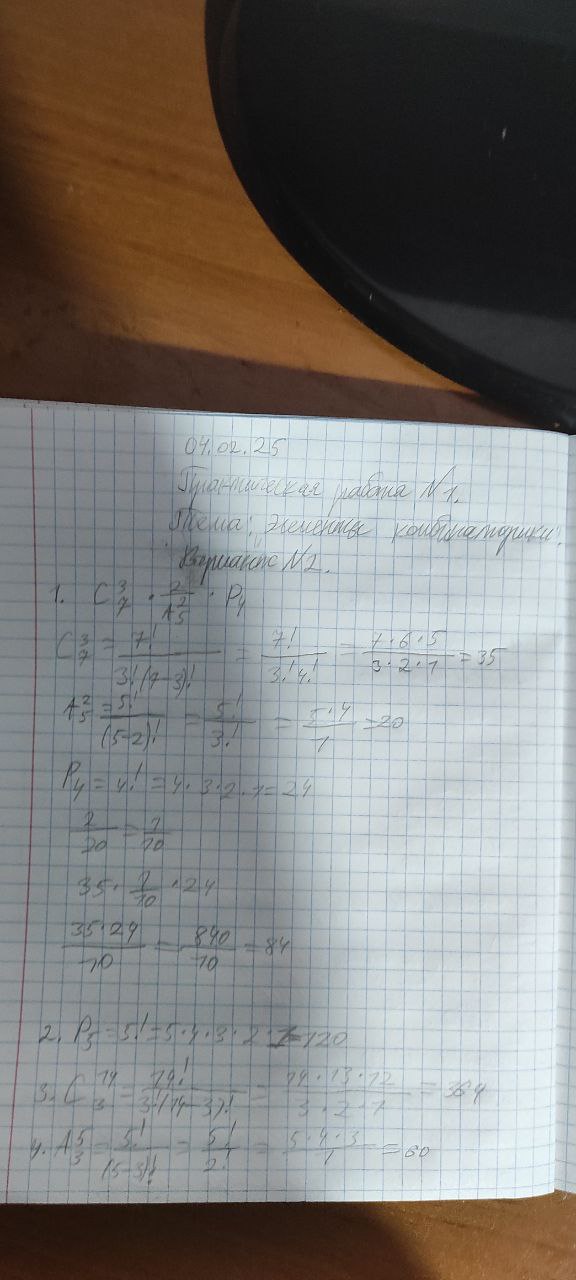 04.02.25
Практическая работа №1.
Тема: Элементы комбинаторики.
Вариант №2.
1. C³₇ · 2/A²₅ · P₄
C³₇ = 7!/3!(7-3)! = 7!/3!4! = 7·6·5/3·2·1 = 35
A²₅ = 5!/(5-2)! = 5!/3! = 5·4/1 = 20
P₄ = 4! = 4·3·2·1 = 24
2/20 = 1/10
35 · 1/10 · 24
35·24/10 = 840/10 = 84
2. P₅ = 5! = 5·4·3·2·1 = 120
3. C¹⁴₃ = 14!/3!(14-3)! = 14·13·12/3·2·1 = 364
4. A⁵₃ = 5!/(5-3)! = 5!/2! = 5·4·3/1 = 60